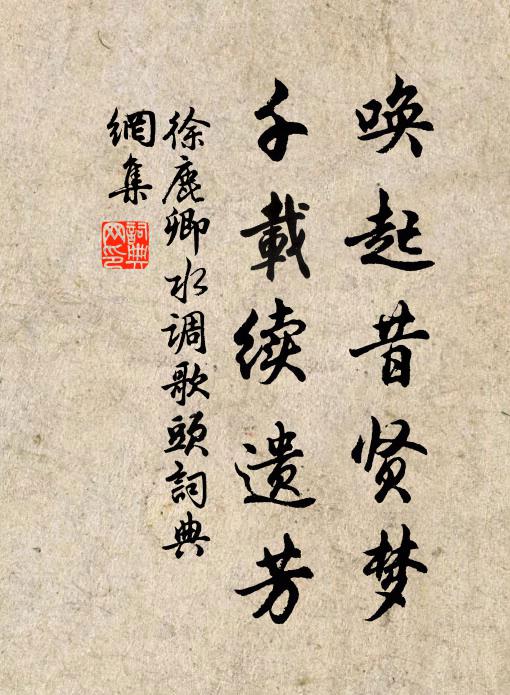 唤起昔贤梦
千載续遗芳
徐鹿卿水调歌頭詞典
網集
詞典
网印